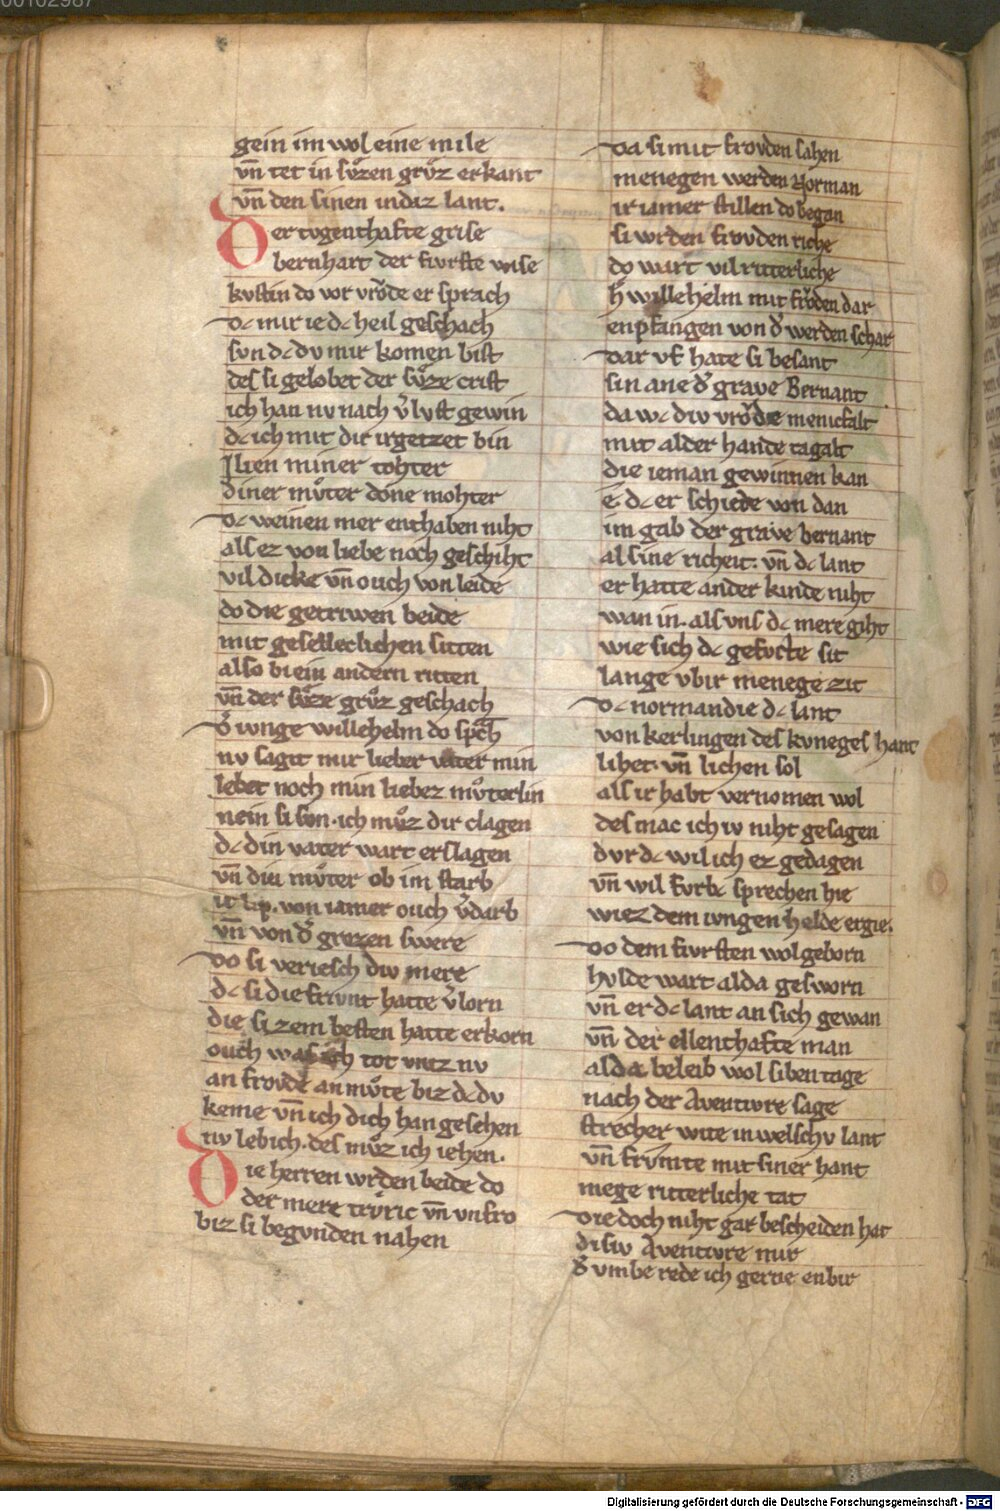 gein im wol eine mile
vn̄ tet in sv̊zen grv̊z erkant
vn̄ den sinen indiz lant.
Der tvgenthafte grise
bernhart der fivrste wise
kvstin do vor vrǒde er sprach
dc mir ie dc heil geschach
svn dc dv mir komen bist
des si gelobet der sv̊ze crist
ich han nv nach v̾lvst gewin
dc ich mit dir irgetzet bin
Ilien miner tohter
diner mv̊ter done mohter
dc weinen mer enthaben niht
als ez von liebe noch geschiht
vil dicke vn̄ ouch von leide
do die getriwen beide
mit geselleclichen sitten
also bi ein andern ritten
vn̄ der sv̊ze grv̊z geschach
d̾ ivnge willehelm do sp̄ch
nv sagit mir lieber vater min
lebet noch min liebez mv̊terlin
nein si svn. ich mv̊z dir clagen
dc din vater wart erslagen
vn̄ din mv̊ter ob im starb
ir lip. von iamer ouch v̾darb
vn̄ von d̾ grozen swere
do si veriesch div mere
dc si die frivnt hatte v̾lorn
die si zem besten hatte erkorn
ouch was ich tot vntz nv
an frovde an mv̊te biz dc dv
keme vn̄ ich dich han gesehen
nv leb ich. des mv̊z ich iehen.
Die herren wrden beide do
der mere trvric vn̄ vnfro
biz si begvnden nahen
da si mit frovden sahen
menegen werden Norman
ir iamer stillen do began
si wrden frovden riche
do wart vil ritterliche
h̾ willehelm mit frǒden dar
enpfangen von d̾ werden schar
dar vf hate si besant
sin ane d̾ grave Bernant
da wc div vrǒde menicfalt
mit alder hande tagalt
die ieman gewinnen kan
e dc er schiede von dan
im gab der grave bernant
al sine richeit. vn̄ dc lant
er hatte ander kinde niht
wan in. als vns dc mere giht
wie sich dc gefvcte sit
lange vbir menege zit
dc normandie dc lant
von kerlingen des kvneges hant
lihet. vn̄ lichen sol
als ir habt vernomen wol
des mac ich iv niht gesagen
dvr dc wil ich ez gedagen
vn̄ wil fvrbc sprechen hie
wiez dem ivngen helde ergie.
Do dem fivrsten wolgeborn
hvlde wart alda gesworn
vn̄ er dc lant an sich gewan
vn̄ der ellenthafte man
alda beleib wol siben tage
nach der Aventivre sage
strecher wite in welschv lant
vn̄ frvmte mit siner hant
mege ritterliche tat
die doch niht gar bescheiden hat
disiv Aventivre mir
d̾ vmbe rede ich gerne enbir
Digitalisierung gefördert durch die Deutsche Forschungsgemeinschaft - DFG